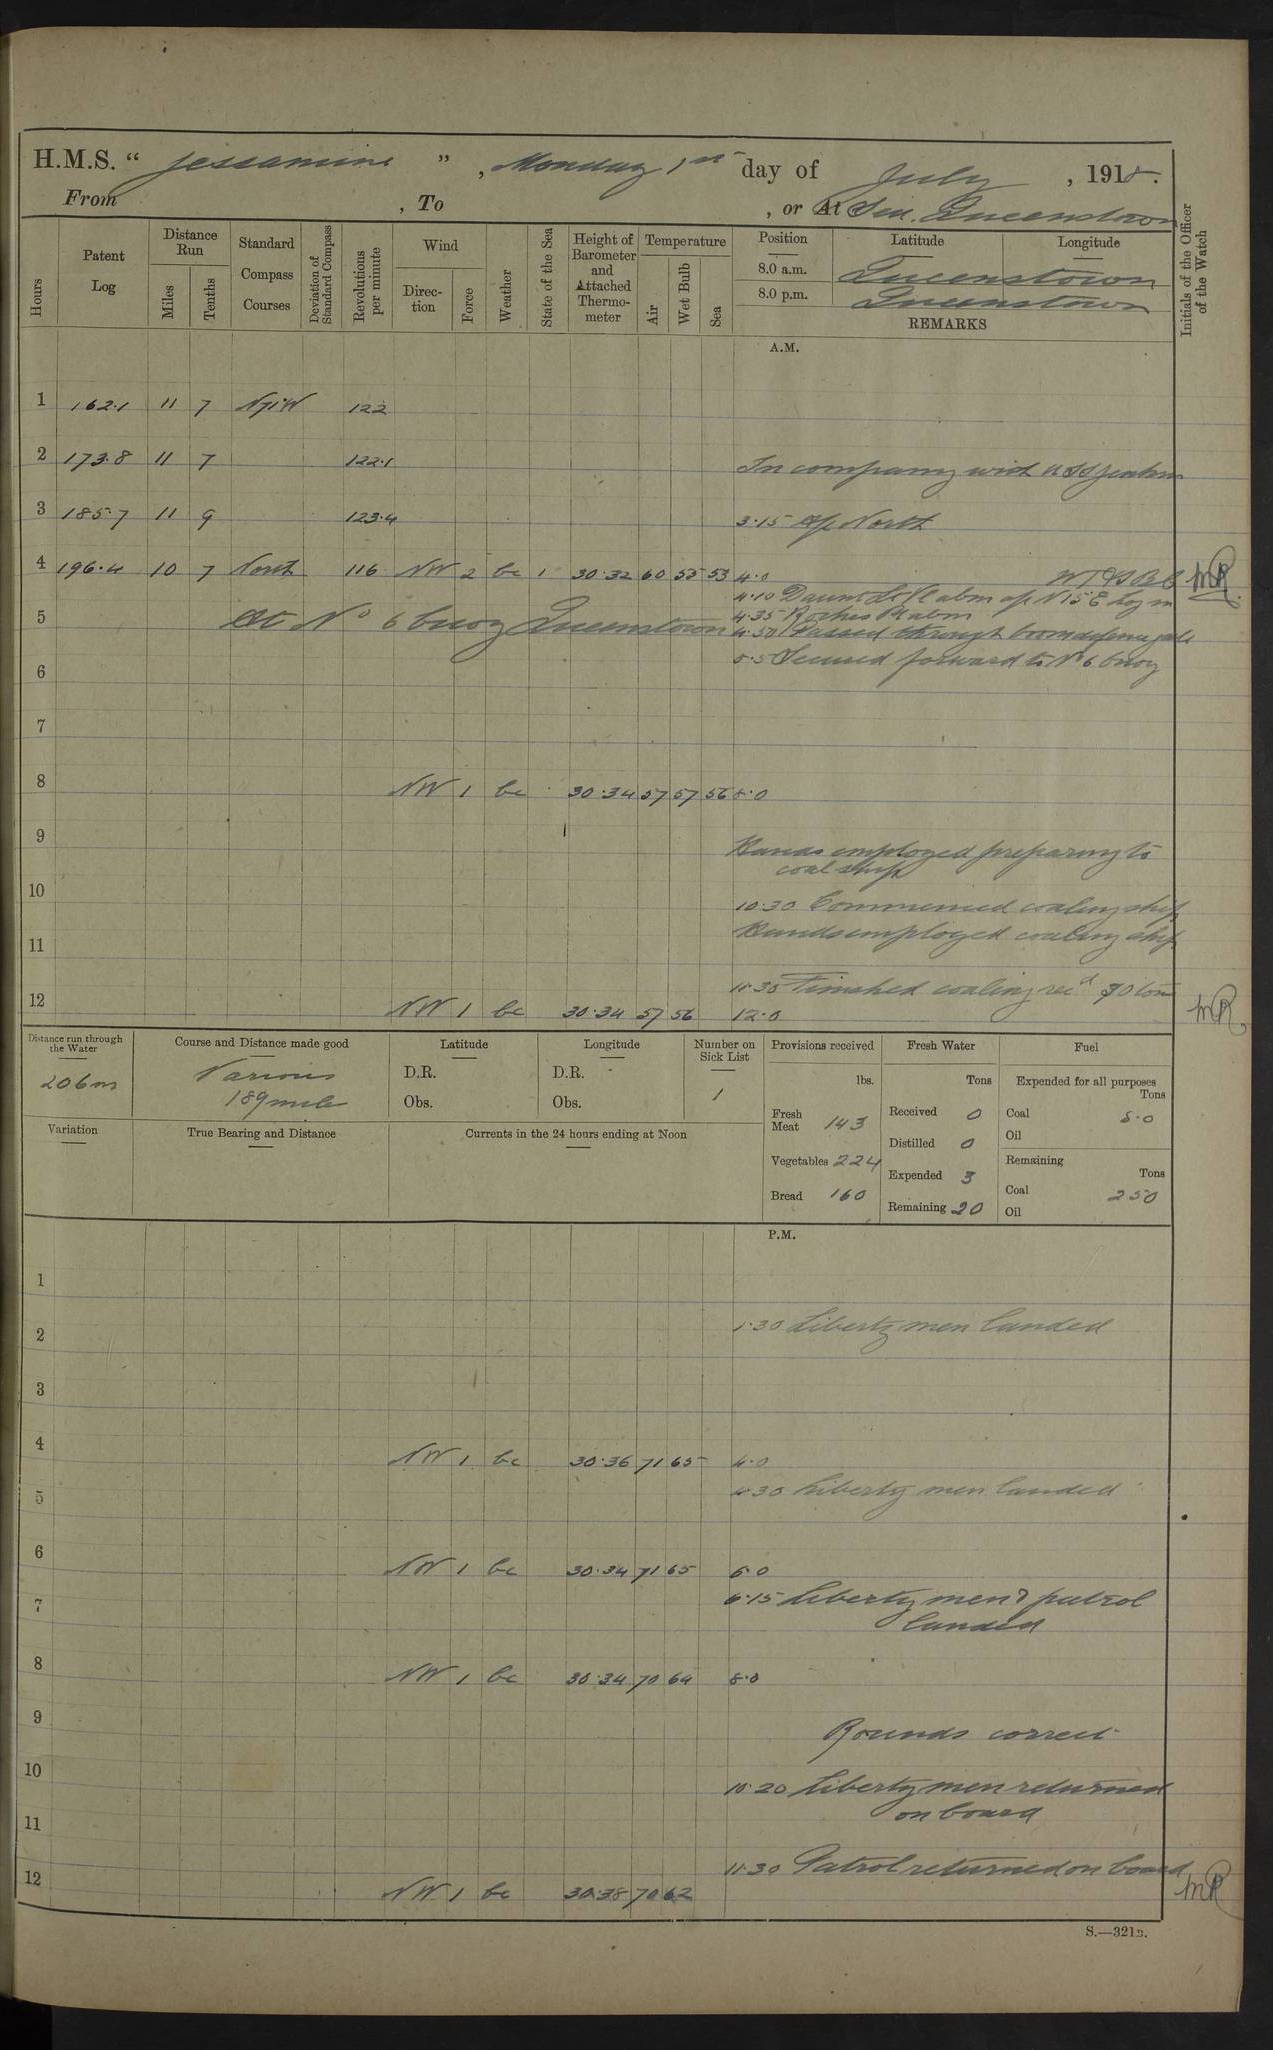 H.M.S. " Jessamine ", Monday 1st day of July, 1918.
From , To , or At Sea. Queenstown
Hours
Patent Log
Distance Run
Miles
Tenths
Standard Compass Courses
Deviation of Standard Compass
Revolutions per minute
Wind
Direction
Force
Weather
State of the Sea
Height of Barometer and Attached Thermometer
Temperature
Air
Wet Bulb
Sea
Position
Latitude
Longitude
8.0 a.m. Queenstown
8.0 p.m. Queenstown
REMARKS
Initials of the Officer of the Watch
A.M.
1 162.1 11 7 122
2 173.8 11 7 122.1 In company with USS Jenkins
3 185.7 11 9 123.4 3.15 a/c North
4 196.4 10 7 North 116 NW 2 bc 1 30.32 60 55 53 4.0 MR
4.10 Daunt Lt Vl abm a/c N15E Log in
4.35 Roches Pt abm
5 At No 6 buoy Queenstown 4.50 Passed through boom defence gate
5.5 Secured forward to No 6 buoy
6
7
8 NW 1 bc 30.34 57 57 56 8.0
9 Hands employed preparing to
coal ship
10 10.30 Commenced coaling ship
Hands employed coaling ship
11
11.30 Finished coaling recd 90 tons
12 NW 1 bc 30.34 57 56 12.0 MR
Distance run through the Water
206m
Course and Distance made good
Various
189 mile
Latitude
D.R.
Obs.
Longitude
D.R.
Obs.
Number on Sick List
1
Provisions received
lbs.
Fresh Meat 143
Vegetables 224
Bread 160
Fresh Water
Tons
Received 0
Distilled 0
Expended 3
Remaining 20
Fuel
Expended for all purposes
Tons
Coal 5.0
Oil
Remaining
Tons
Coal 250
Oil
Variation
True Bearing and Distance
Currents in the 24 hours ending at Noon
P.M.
1
1.30 Liberty men landed
2
3
4 NW 1 bc 30.36 71 65 4.0
4.30 Liberty men landed
5
6 NW 1 bc 30.34 71 65 6.0
7 6.15 Liberty men & patrol
landed
8 NW 1 bc 30.34 70 64 8.0
9 Rounds correct
10 10.20 Liberty men returned
on board
11
11.30 Patrol returned on board
12 NW 1 bc 30.38 70 62 MR
S.—321B.